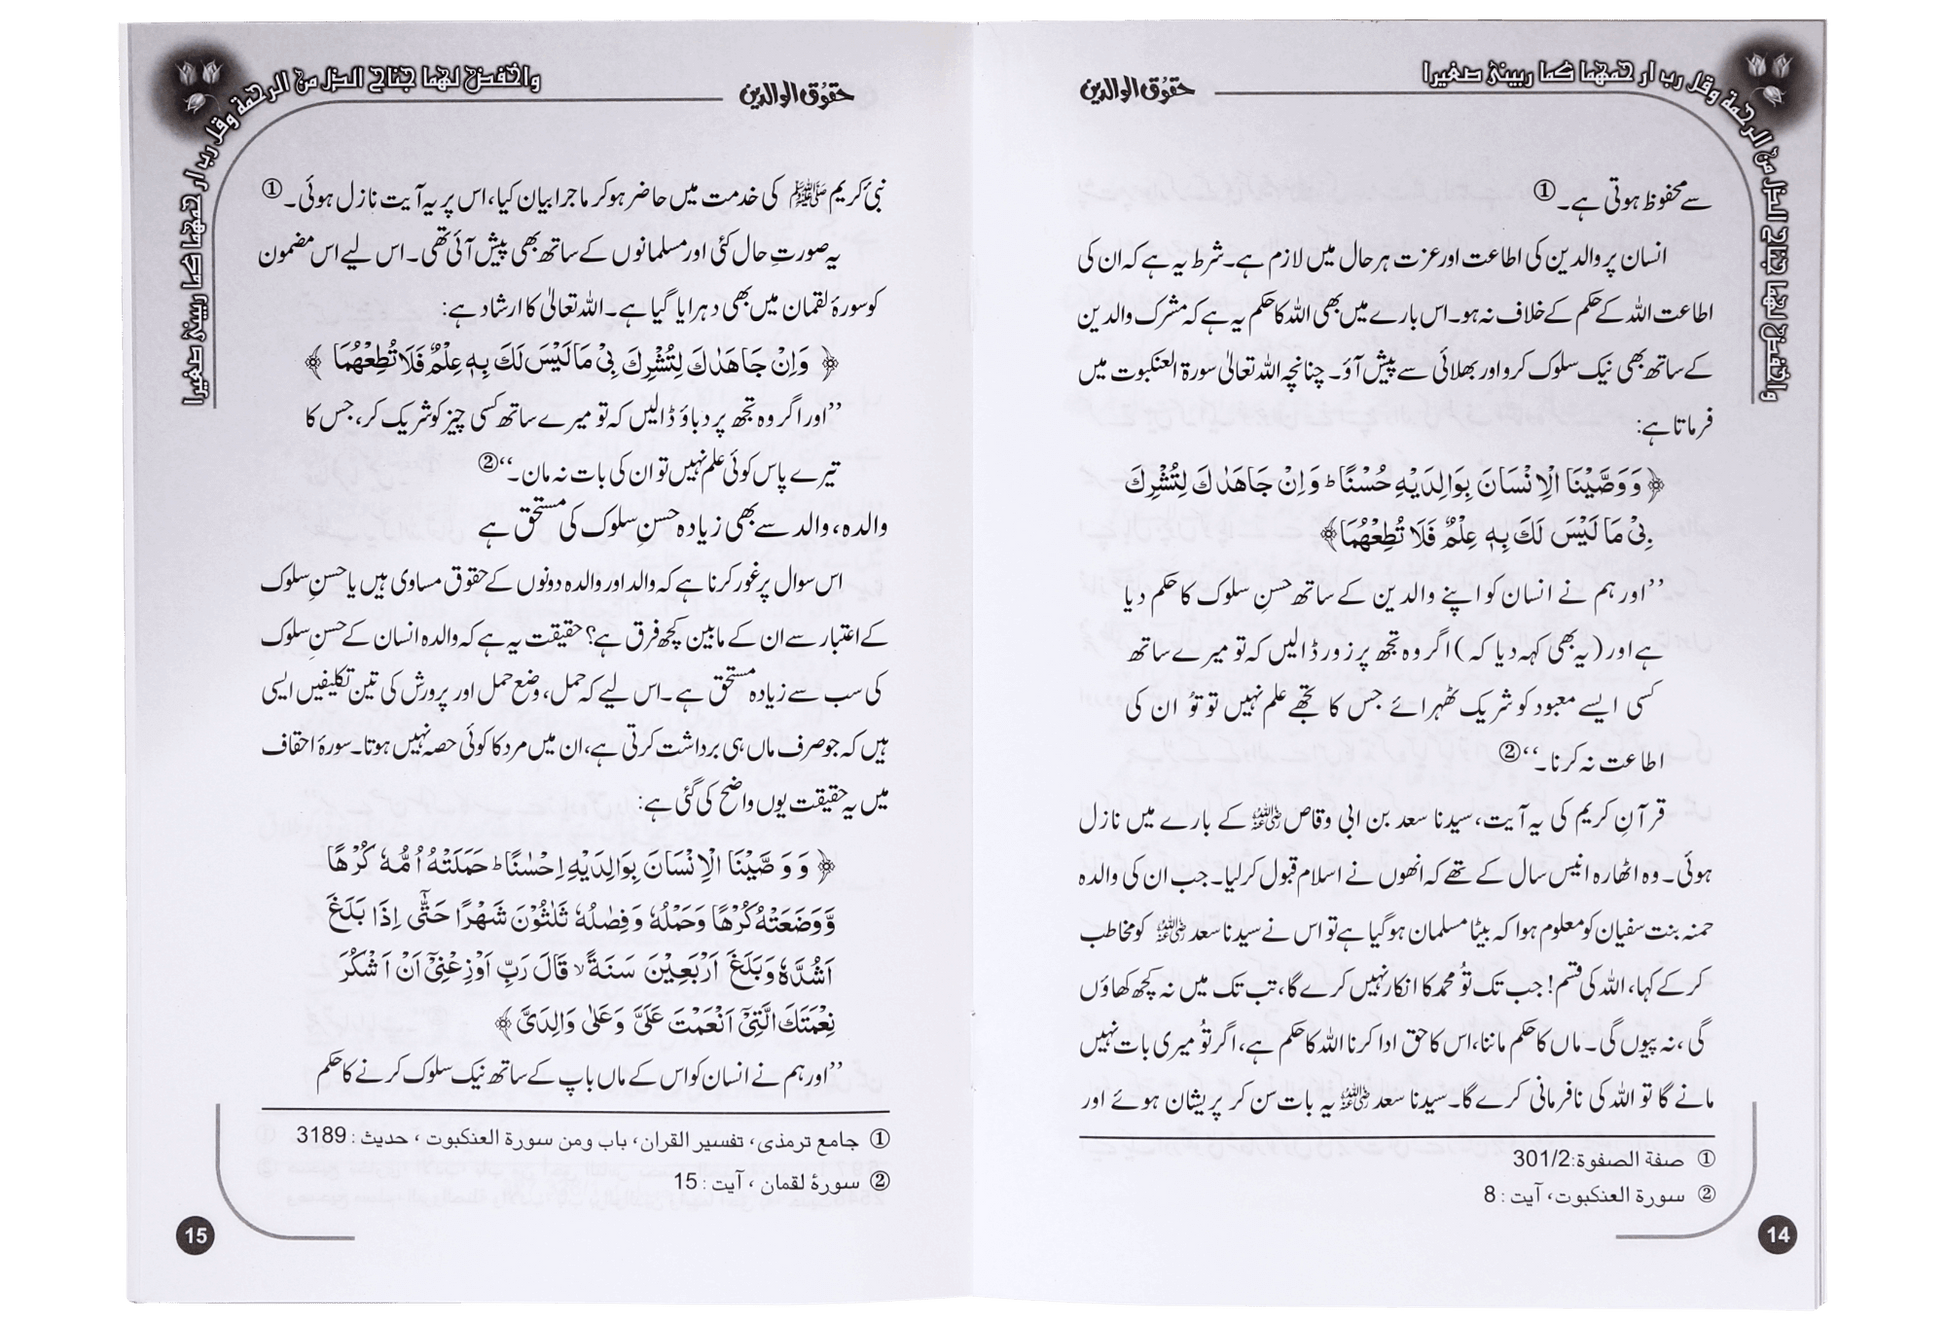 حقوق الوالدین
واخفض لهما جناح الذل من الرحمة وقل رب ارحمهما كما ربيني صغيرا
سے محفوظ ہوتی ہے۔①
انسان پر والدین کی اطاعت اور عزت ہر حال میں لازم ہے۔ شرط یہ ہے کہ ان کی
اطاعت اللہ کے حکم کے خلاف نہ ہو۔ اس بارے میں بھی اللہ کا حکم یہ ہے کہ مشرک والدین
کے ساتھ بھی نیک سلوک کرو اور بھلائی سے پیش آؤ۔ چنانچہ اللہ تعالیٰ سورة العنکبوت میں
فرماتا ہے:
﴿ وَوَصَّيْنَا الْاِنْسَانَ بِوَالِدَيْهِ حُسْنًا ؕ وَاِنْ جَاهَدٰكَ لِتُشْرِكَ
بِيْ مَا لَيْسَ لَكَ بِهٖ عِلْمٌ فَلَا تُطِعْهُمَا ﴾
’’اور ہم نے انسان کو اپنے والدین کے ساتھ حسنِ سلوک کا حکم دیا
ہے اور (یہ بھی کہہ دیا کہ) اگر وہ تجھ پر زور ڈالیں کہ تو میرے ساتھ
کسی ایسے معبود کو شریک ٹھہرائے جس کا تجھے علم نہیں تو تُو ان کی
اطاعت نہ کرنا۔‘‘②
قرآنِ کریم کی یہ آیت، سیدنا سعد بن ابی وقاص رضی اللہ عنہ کے بارے میں نازل
ہوئی۔ وہ اٹھارہ انیس سال کے تھے کہ انھوں نے اسلام قبول کرلیا۔ جب ان کی والدہ
حمنہ بنت سفیان کو معلوم ہوا کہ بیٹا مسلمان ہو گیا ہے تو اس نے سیدنا سعد رضی اللہ عنہ کو مخاطب
کرکے کہا، اللہ کی قسم! جب تک تُو محمد کا انکار نہیں کرے گا، تب تک میں نہ کچھ کھاؤں
گی، نہ پیوں گی۔ ماں کا حکم ماننا، اس کا حق ادا کرنا اللہ کا حکم ہے، اگر تُو میری بات نہیں
مانے گا تو اللہ کی نافرمانی کرے گا۔ سیدنا سعد رضی اللہ عنہ یہ بات سن کر پریشان ہوئے اور
① صفة الصفوة:301/2
② سورة العنکبوت، آیت : 8
14
حقوق الوالدین
واخفض لهما جناح الذل من الرحمة وقل رب ارحمهما كما ربيني صغيرا
نبیٔ کریم ﷺ کی خدمت میں حاضر ہوکر ماجرا بیان کیا، اس پر یہ آیت نازل ہوئی۔①
یہ صورتِ حال کئی اور مسلمانوں کے ساتھ بھی پیش آئی تھی۔ اس لیے اس مضمون
کو سورۂ لقمان میں بھی دہرایا گیا ہے۔ اللہ تعالیٰ کا ارشاد ہے:
﴿ وَاِنْ جَاهَدٰكَ لِتُشْرِكَ بِيْ مَا لَيْسَ لَكَ بِهٖ عِلْمٌ فَلَا تُطِعْهُمَا ﴾
’’اور اگر وہ تجھ پر دباؤ ڈالیں کہ تو میرے ساتھ کسی چیز کو شریک کر، جس کا
تیرے پاس کوئی علم نہیں تو ان کی بات نہ مان۔‘‘②
والدہ، والد سے بھی زیادہ حسنِ سلوک کی مستحق ہے
اس سوال پر غور کرنا ہے کہ والد اور والدہ دونوں کے حقوق مساوی ہیں یا حسنِ سلوک
کے اعتبار سے ان کے مابین کچھ فرق ہے؟ حقیقت یہ ہے کہ والدہ انسان کے حسنِ سلوک
کی سب سے زیادہ مستحق ہے۔ اس لیے کہ حمل، وضع حمل اور پرورش کی تین تکلیفیں ایسی
ہیں کہ جو صرف ماں ہی برداشت کرتی ہے، ان میں مرد کا کوئی حصہ نہیں ہوتا۔ سورۂ احقاف
میں یہ حقیقت یوں واضح کی گئی ہے:
﴿ وَوَصَّيْنَا الْاِنْسَانَ بِوَالِدَيْهِ اِحْسٰنًا ؕ حَمَلَتْهُ اُمُّهٗ كُرْهًا
وَّوَضَعَتْهُ كُرْهًا وَحَمْلُهٗ وَفِصٰلُهٗ ثَلٰثُوْنَ شَهْرًا حَتّٰٓى اِذَا بَلَغَ
اَشُدَّهٗ وَبَلَغَ اَرْبَعِيْنَ سَنَةً ۙ قَالَ رَبِّ اَوْزِعْنِيْٓ اَنْ اَشْكُرَ
نِعْمَتَكَ الَّتِيْٓ اَنْعَمْتَ عَلَيَّ وَعَلٰى وَالِدَيَّ ﴾
’’اور ہم نے انسان کو اس کے ماں باپ کے ساتھ نیک سلوک کرنے کا حکم
① جامع ترمذی، تفسیر القران، باب ومن سورة العنکبوت، حدیث : 3189
② سورۂ لقمان ، آیت : 15
15